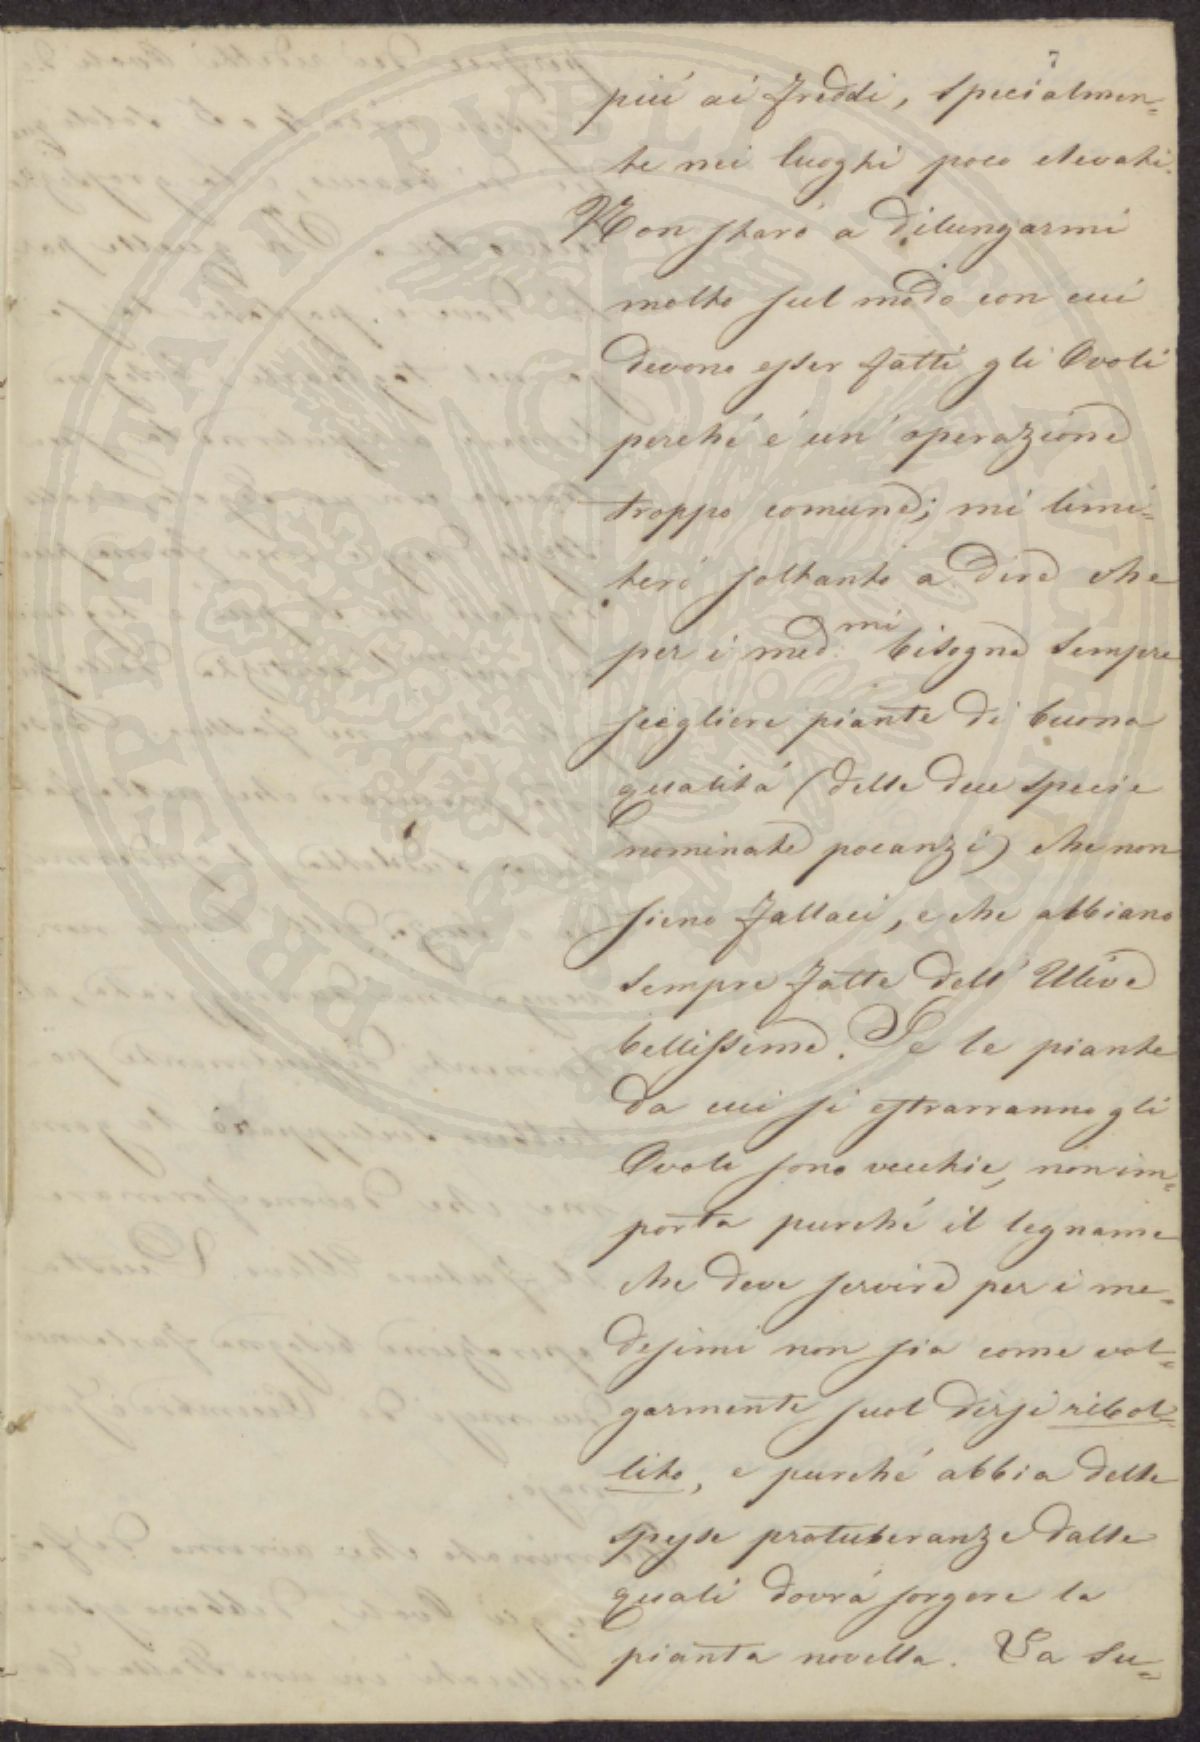 7
piú ai freddi, specialmen=
te nei luoghi poco elevati.
Non staró a dilungarmi
molto sul modo con cui
devono esser fatti gli Ovoli
perché é un' operazione
troppo comune; mi limi=
teró soltanto a dire che
per i med:mi bisogna sempre
scegliere piante di buona
qualitá (delle due specie
nominate pocanzi) che non
sieno fallaci, e che abbiano
sempre fatte dell' Ulive
bellissime. Se le piante
da cui si estrarranno gli
Ovoli sono vecchie, non im=
porta purché il legname
che deve servire per i me=
desimi non sia come vol=
garmente suol dirsi ribol=
lito, e purché abbia delle
spesse protuberanze dalle
quali dovrá sorgere la
pianta novella. Va su=
PROSPERITATI PUBLICAE AUGENDAE